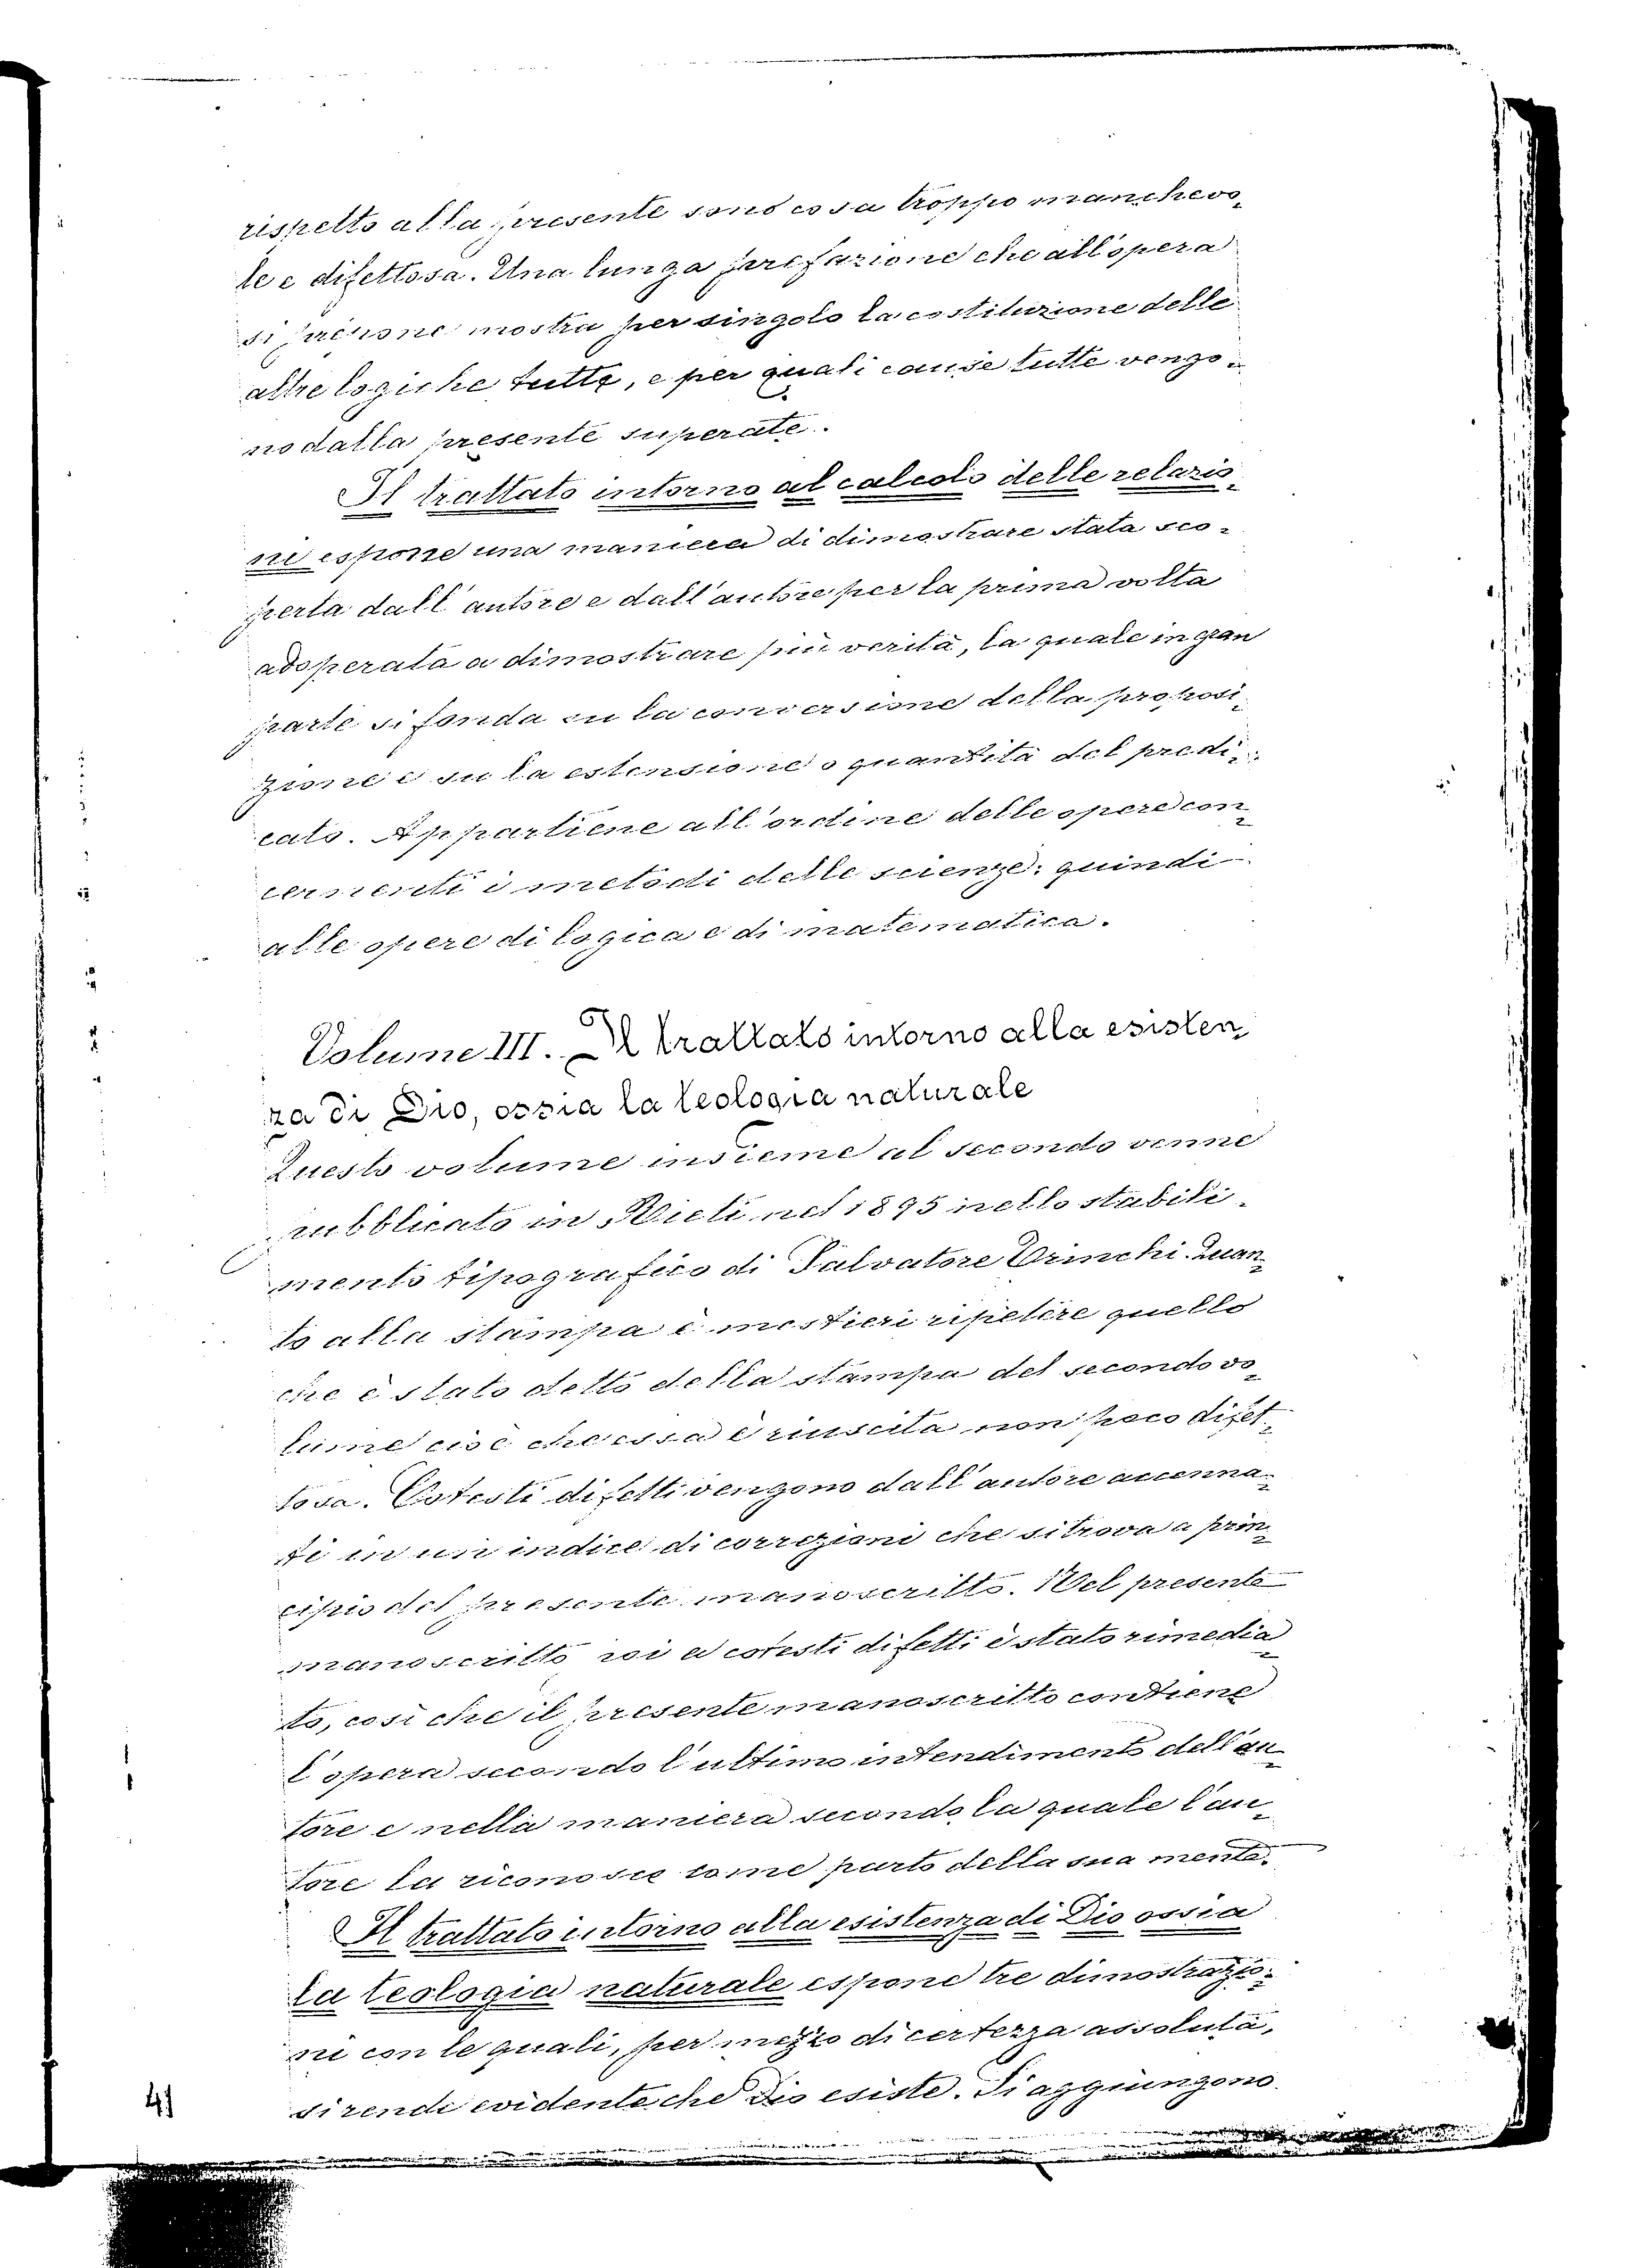 rispetto alla presente sono cosa troppo manchevo-
le e difettosa. Una lunga prefazione che all'opera
si prepone mostra per singolo la costituzione delle
altre logiche tutte, e per quali cause tutte vengo-
no dalla presente superate.
Il trattato intorno al calcolo delle relazio-
ni espone una maniera di dimostrare stata sco-
perta dall'autore e dall'autore per la prima volta
adoperata a dimostrare più verità, la quale in gran
parte si fonda su la conversione della proposi-
zione e su la estensione o quantità del predi-
cato. Appartiene all'ordine delle opere con-
cernenti i metodi delle scienze: quindi
alle opere di logica e di matematica.
Volume III. Il trattato intorno alla esisten-
za di Dio, ossia la teologia naturale
Questo volume insieme al secondo venne
pubblicato in Rieti nel 1895 nello stabili-
mento tipografico di Salvatore Trinchi. Quan-
to alla stampa è mestieri ripetere quello
che è stato detto della stampa del secondo vo-
lume cioè che essa è riuscita non poco difet-
tosa. Cotesti difetti vengono dall'autore accenna-
ti in un indice di correzioni che si trova a prin-
cipio del presente manoscritto. Nel presente
manoscritto poi a cotesti difetti è stato rimedia-
to, così che il presente manoscritto contiene
l'opera secondo l'ultimo intendimento dell'au-
tore e nella maniera secondo la quale l'au-
tore la riconosce come parto della sua mente.
Il trattato intorno alla esistenza di Dio ossia
la teologia naturale espone tre dimostrazio-
ni con le quali, per mezzo di certezza assoluta,
si rende evidente che Dio esiste. Si aggiungono
41